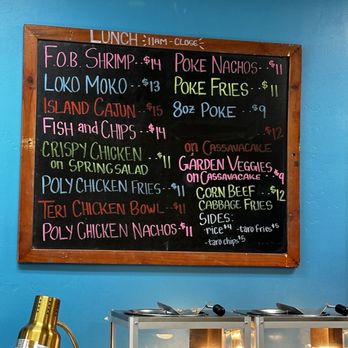 LUNCH 11AM - CLOSE
F.O.B. SHRIMP..$14
LOKO MOKO..$13
ISLAND CAJUN..$15
FISH AND CHIPS..$14
CRISPY CHICKEN
ON SPRING SALAD..$11
POLY CHICKEN FRIES..$11
TERI CHICKEN BOWL..$11
POLY CHICKEN NACHOS..$11
POKE NACHOS..$11
POKE FRIES..$11
8oz POKE..$9
$12
on CASSAVACAKE
GARDEN VEGGIES
on CASSAVACAKE..$9
CORN BEEF..$12
CABBAGE FRIES
SIDES:
-rice$4 -taro fries$5
-taro chips$5